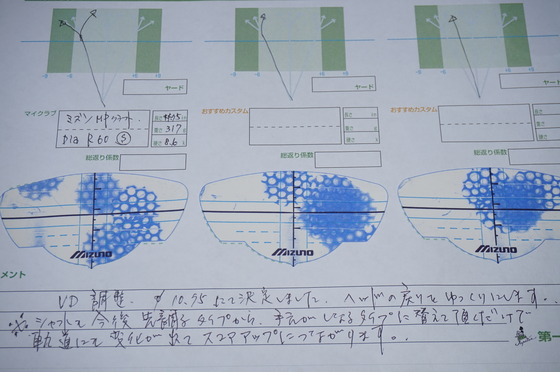 -5 0 5 10
ヤード
ヤード
ヤード
マイクラブ
ミズノ MP クラフト.
Dia R60 Ⓢ
長さ 44.75
重さ 317 g
硬さ 6.6
おすすめカスタム
長さ
重さ g
硬さ
おすすめカスタム
長さ
重さ g
硬さ
総返り係数
総返り係数
総返り係数
MIZUNO
MIZUNO
MIZUNO
メント
UD 調整. 10.75 にて決定しました. ヘッドの戻りをゆっくりにします.
※ シャフトを今後 先調子タイプから、手元がしなるタイプに替えて頂くだけで
軌道にも変化が出て スコアアップにつながります.
第一